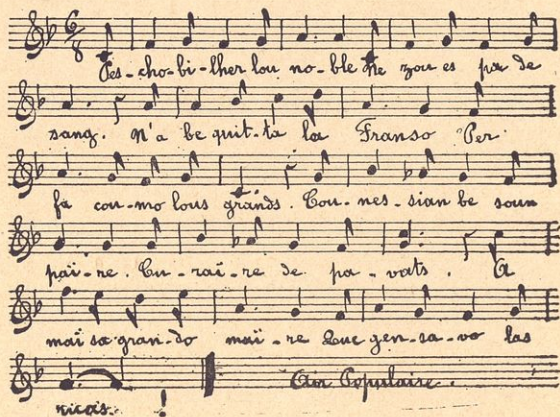 Pes-cho-bi-lher lou no-ble Ne zou es pa de
sang. N'a be quit-ta la Franso Per
fa cou-mo lous grands. Cou-nes-sian be soun
païre. Cu-raï-re de pa-vats. A
maï sa gran-do maï-re Que gen-sa-vo las
Air Populaire.